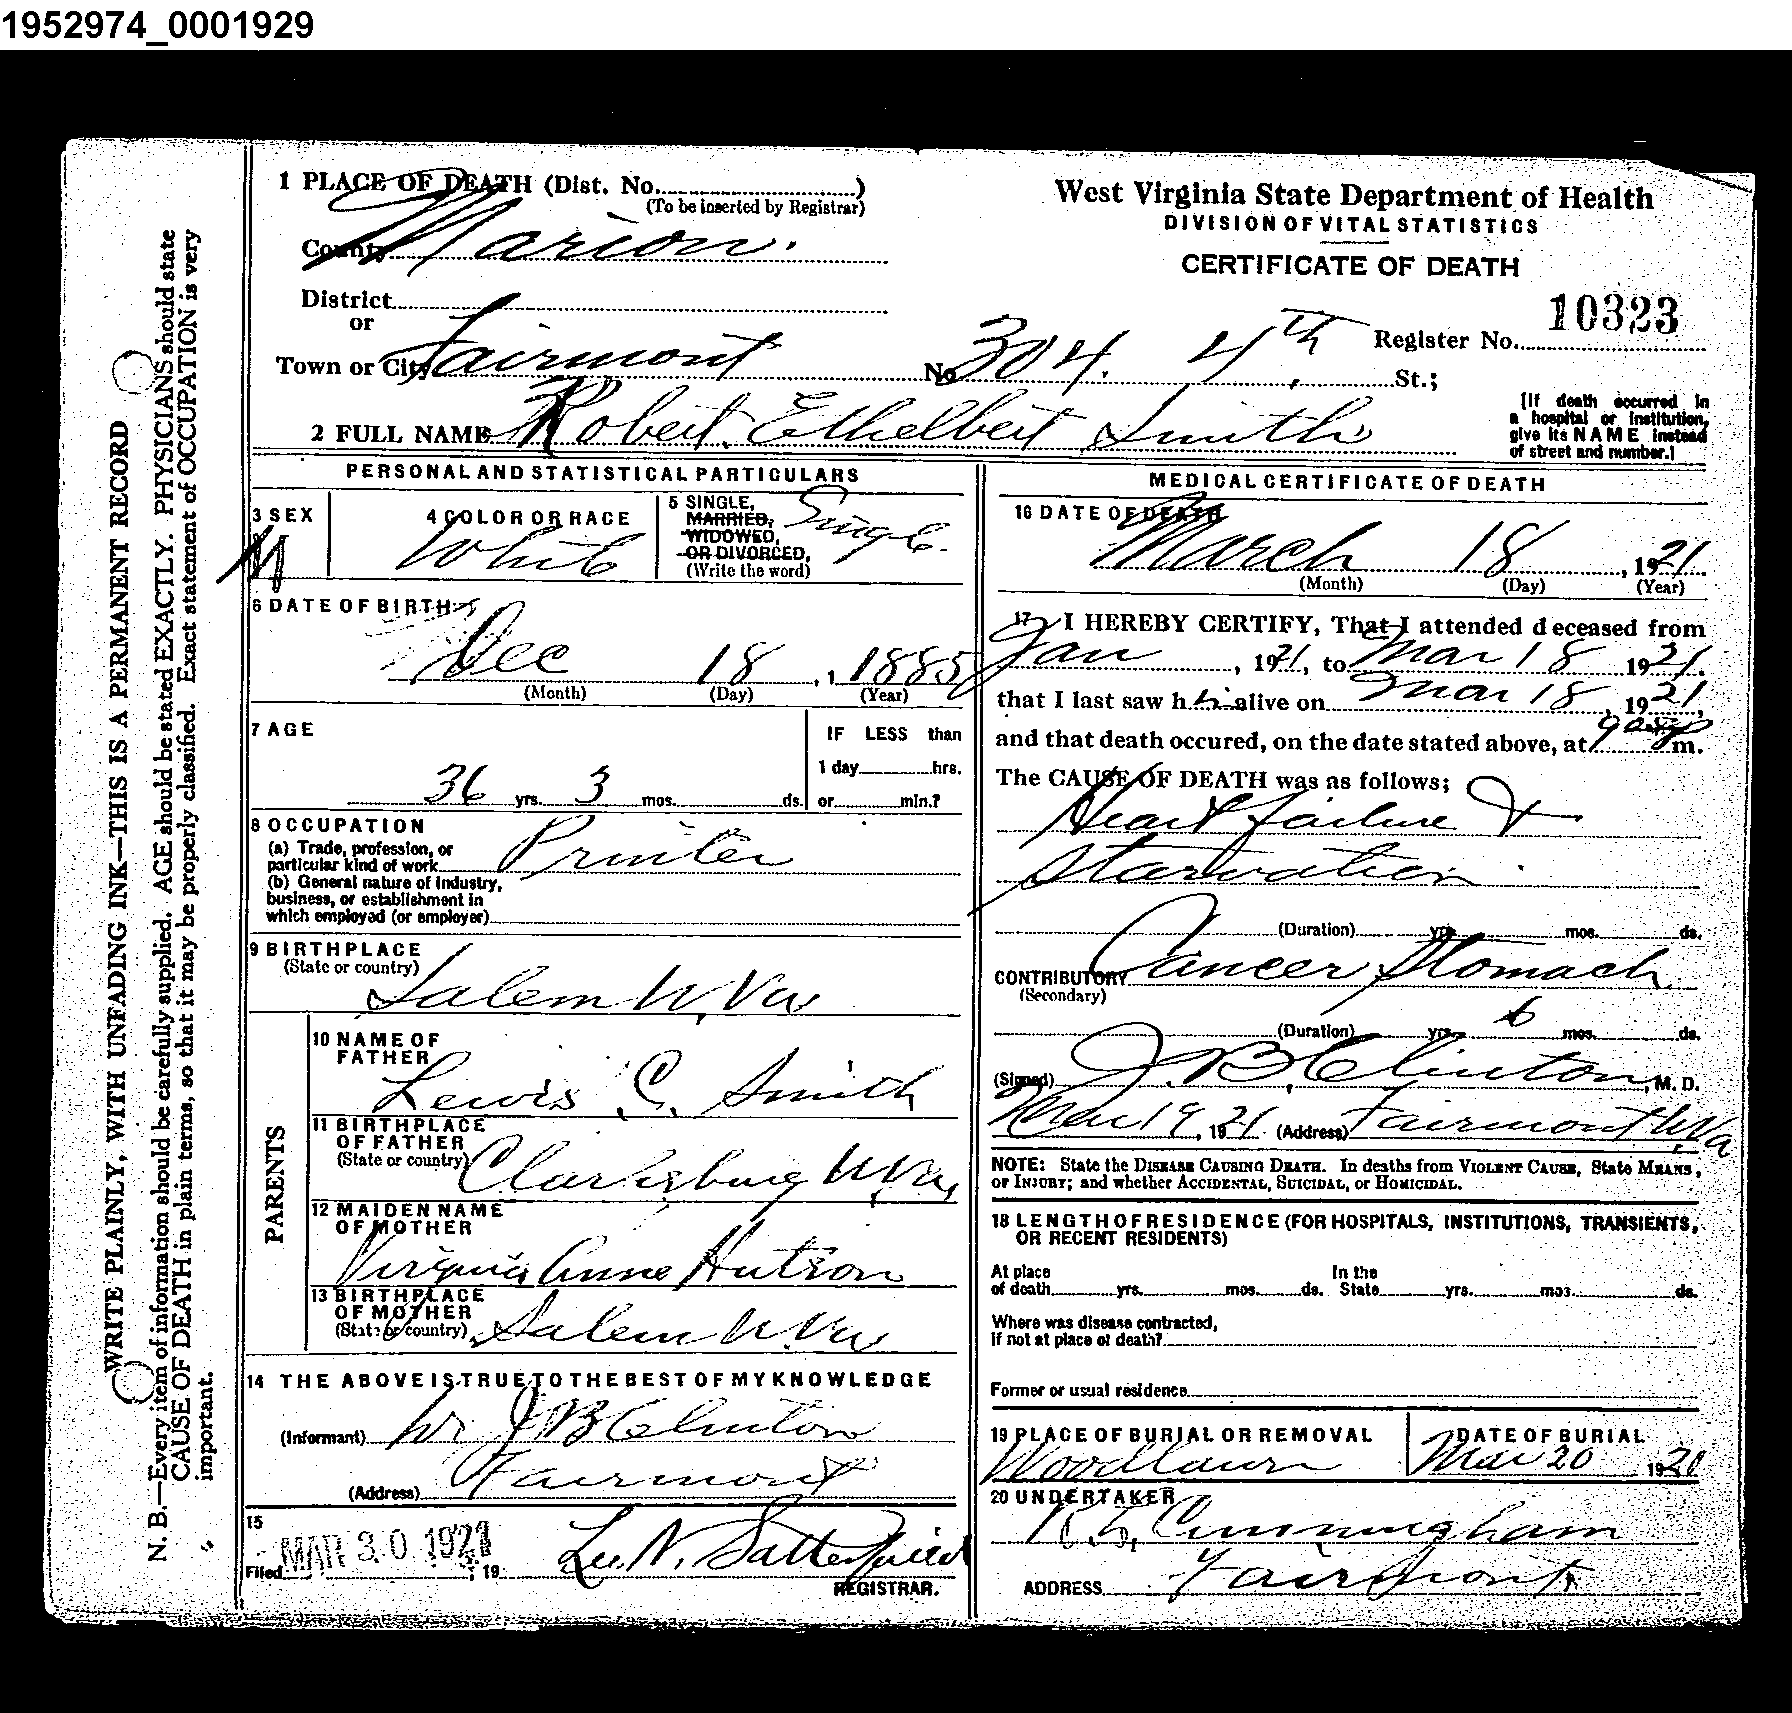 1952974_0001929
WRITE PLAINLY, WITH UNFADING INK—THIS IS A PERMANENT RECORD
N. B.—Every item of information should be carefully supplied. AGE should be stated EXACTLY. PHYSICIANS should state
CAUSE OF DEATH in plain terms, so that it may be properly classified. Exact statement of OCCUPATION is very
important.
1 PLACE OF DEATH (Dist. No.)
(To be inserted by Registrar)
County Marion.
District
or
Town or City Fairmont No 304. 4th St.;
West Virginia State Department of Health
DIVISION OF VITAL STATISTICS
CERTIFICATE OF DEATH
10323
Register No.
[If death occurred in
a hospital or institution,
give its NAME instead
of street and number.]
2 FULL NAME Robert Ethelbert Smith
PERSONAL AND STATISTICAL PARTICULARS
3 SEX
M
4 COLOR OR RACE
White
5 SINGLE,
MARRIED,
WIDOWED,
OR DIVORCED,
(Write the word)
Single.
6 DATE OF BIRTH
Dec 18, 1885
(Month) (Day) (Year)
7 AGE
36 yrs. 3 mos. ds.
IF LESS than
1 day hrs.
or min.?
8 OCCUPATION
(a) Trade, profession, or
particular kind of work Printer
(b) General nature of Industry,
business, or establishment in
which employed (or employer)
9 BIRTHPLACE
(State or country)
Salem W. Va
PARENTS
10 NAME OF
FATHER
Lewis C. Smith
11 BIRTHPLACE
OF FATHER
(State or country) Clarksburg W. Va
12 MAIDEN NAME
OF MOTHER
Virginia Anne Hutson
13 BIRTHPLACE
OF MOTHER
(State or country) Salem W. Va
14 THE ABOVE IS TRUE TO THE BEST OF MY KNOWLEDGE
(Informant) J B Clinton
(Address) Fairmont
15
Filed MAR 30 1921, 19 Lee N. Satterfield
REGISTRAR.
MEDICAL CERTIFICATE OF DEATH
16 DATE OF DEATH
March 18, 1921
(Month) (Day) (Year)
17 I HEREBY CERTIFY, That I attended deceased from
Jan, 1921, to Mar 18 1921.
that I last saw h alive on Mar 18, 1921,
and that death occured, on the date stated above, at 9 m.
The CAUSE OF DEATH was as follows;
Heart failure &
Starvation
(Duration) yrs. mos. ds.
CONTRIBUTORY Cancer Stomach
(Secondary)
(Duration) yrs. 6 mos. ds.
(Signed) J. B. Clinton, M. D.
Mar 19, 1921. (Address) Fairmont W. Va
NOTE: State the DISEASE CAUSING DEATH. In deaths from VIOLENT CAUSE, State MEANS,
OF INJURY; and whether ACCIDENTAL, SUICIDAL, or HOMICIDAL.
18 LENGTH OF RESIDENCE (FOR HOSPITALS, INSTITUTIONS, TRANSIENTS,
OR RECENT RESIDENTS)
At place In the
of death yrs. mos. ds. State yrs. mos. ds.
Where was disease contracted,
if not at place of death?
Former or usual residence
19 PLACE OF BURIAL OR REMOVAL
Woodlawn
DATE OF BURIAL
Mar 20 1920
20 UNDERTAKER
Cunningham
ADDRESS Fairmont